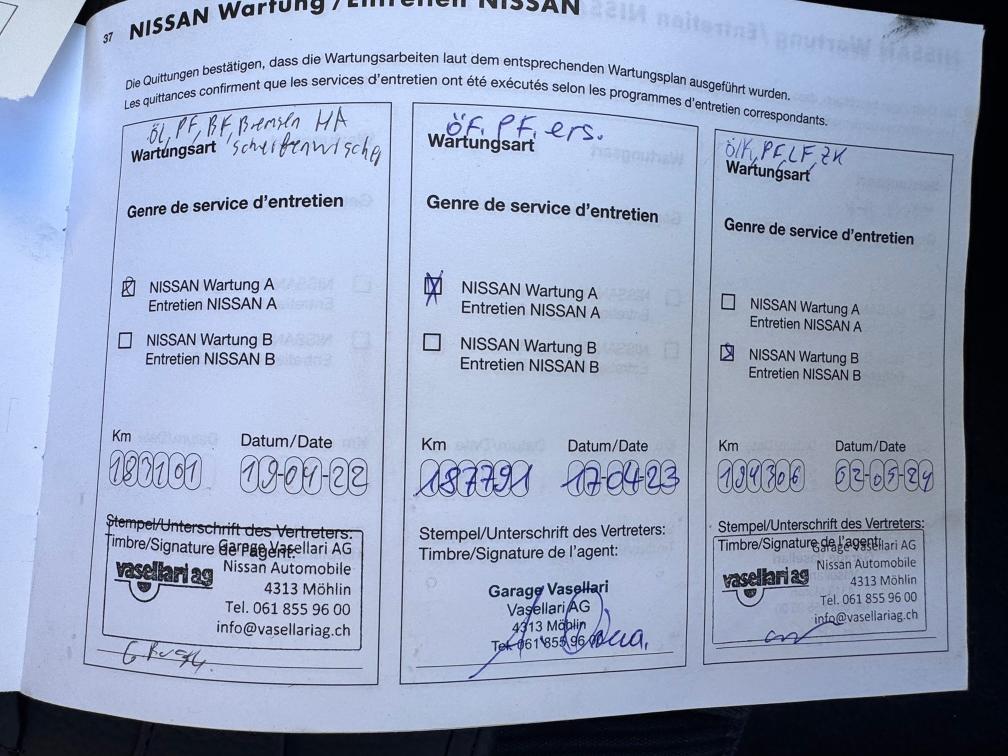 37 NISSAN Wartung / Entretien NISSAN
Die Quittungen bestätigen, dass die Wartungsarbeiten laut dem entsprechenden Wartungsplan ausgeführt wurden.
Les quittances confirment que les services d'entretien ont été exécutés selon les programmes d'entretien correspondants.
Öl, PF, BF, Bremsen HA
Scheibenwischer
Wartungsart
Genre de service d'entretien
NISSAN Wartung A
Entretien NISSAN A
NISSAN Wartung B
Entretien NISSAN B
Km Datum/Date
183101 19-04-22
Stempel/Unterschrift des Vertreters:
Timbre/Signature de l'agent:
Garage Vasellari AG
vasellari ag
Nissan Automobile
4313 Möhlin
Tel. 061 855 96 00
info@vasellariag.ch
ÖF. PF. ers.
Wartungsart
Genre de service d'entretien
NISSAN Wartung A
Entretien NISSAN A
NISSAN Wartung B
Entretien NISSAN B
Km Datum/Date
187791 17-04-23
Stempel/Unterschrift des Vertreters:
Timbre/Signature de l'agent:
Garage Vasellari
Vasellari AG
4313 Möhlin
Tel. 061 855 96
ÖlK, PF, LF, ZK
Wartungsart
Genre de service d'entretien
NISSAN Wartung A
Entretien NISSAN A
NISSAN Wartung B
Entretien NISSAN B
Km Datum/Date
194306 02-05-24
Stempel/Unterschrift des Vertreters:
Timbre/Signature de l'agent:
Garage Vasellari AG
vasellari ag
Nissan Automobile
4313 Möhlin
Tel. 061 855 96 00
info@vasellariag.ch